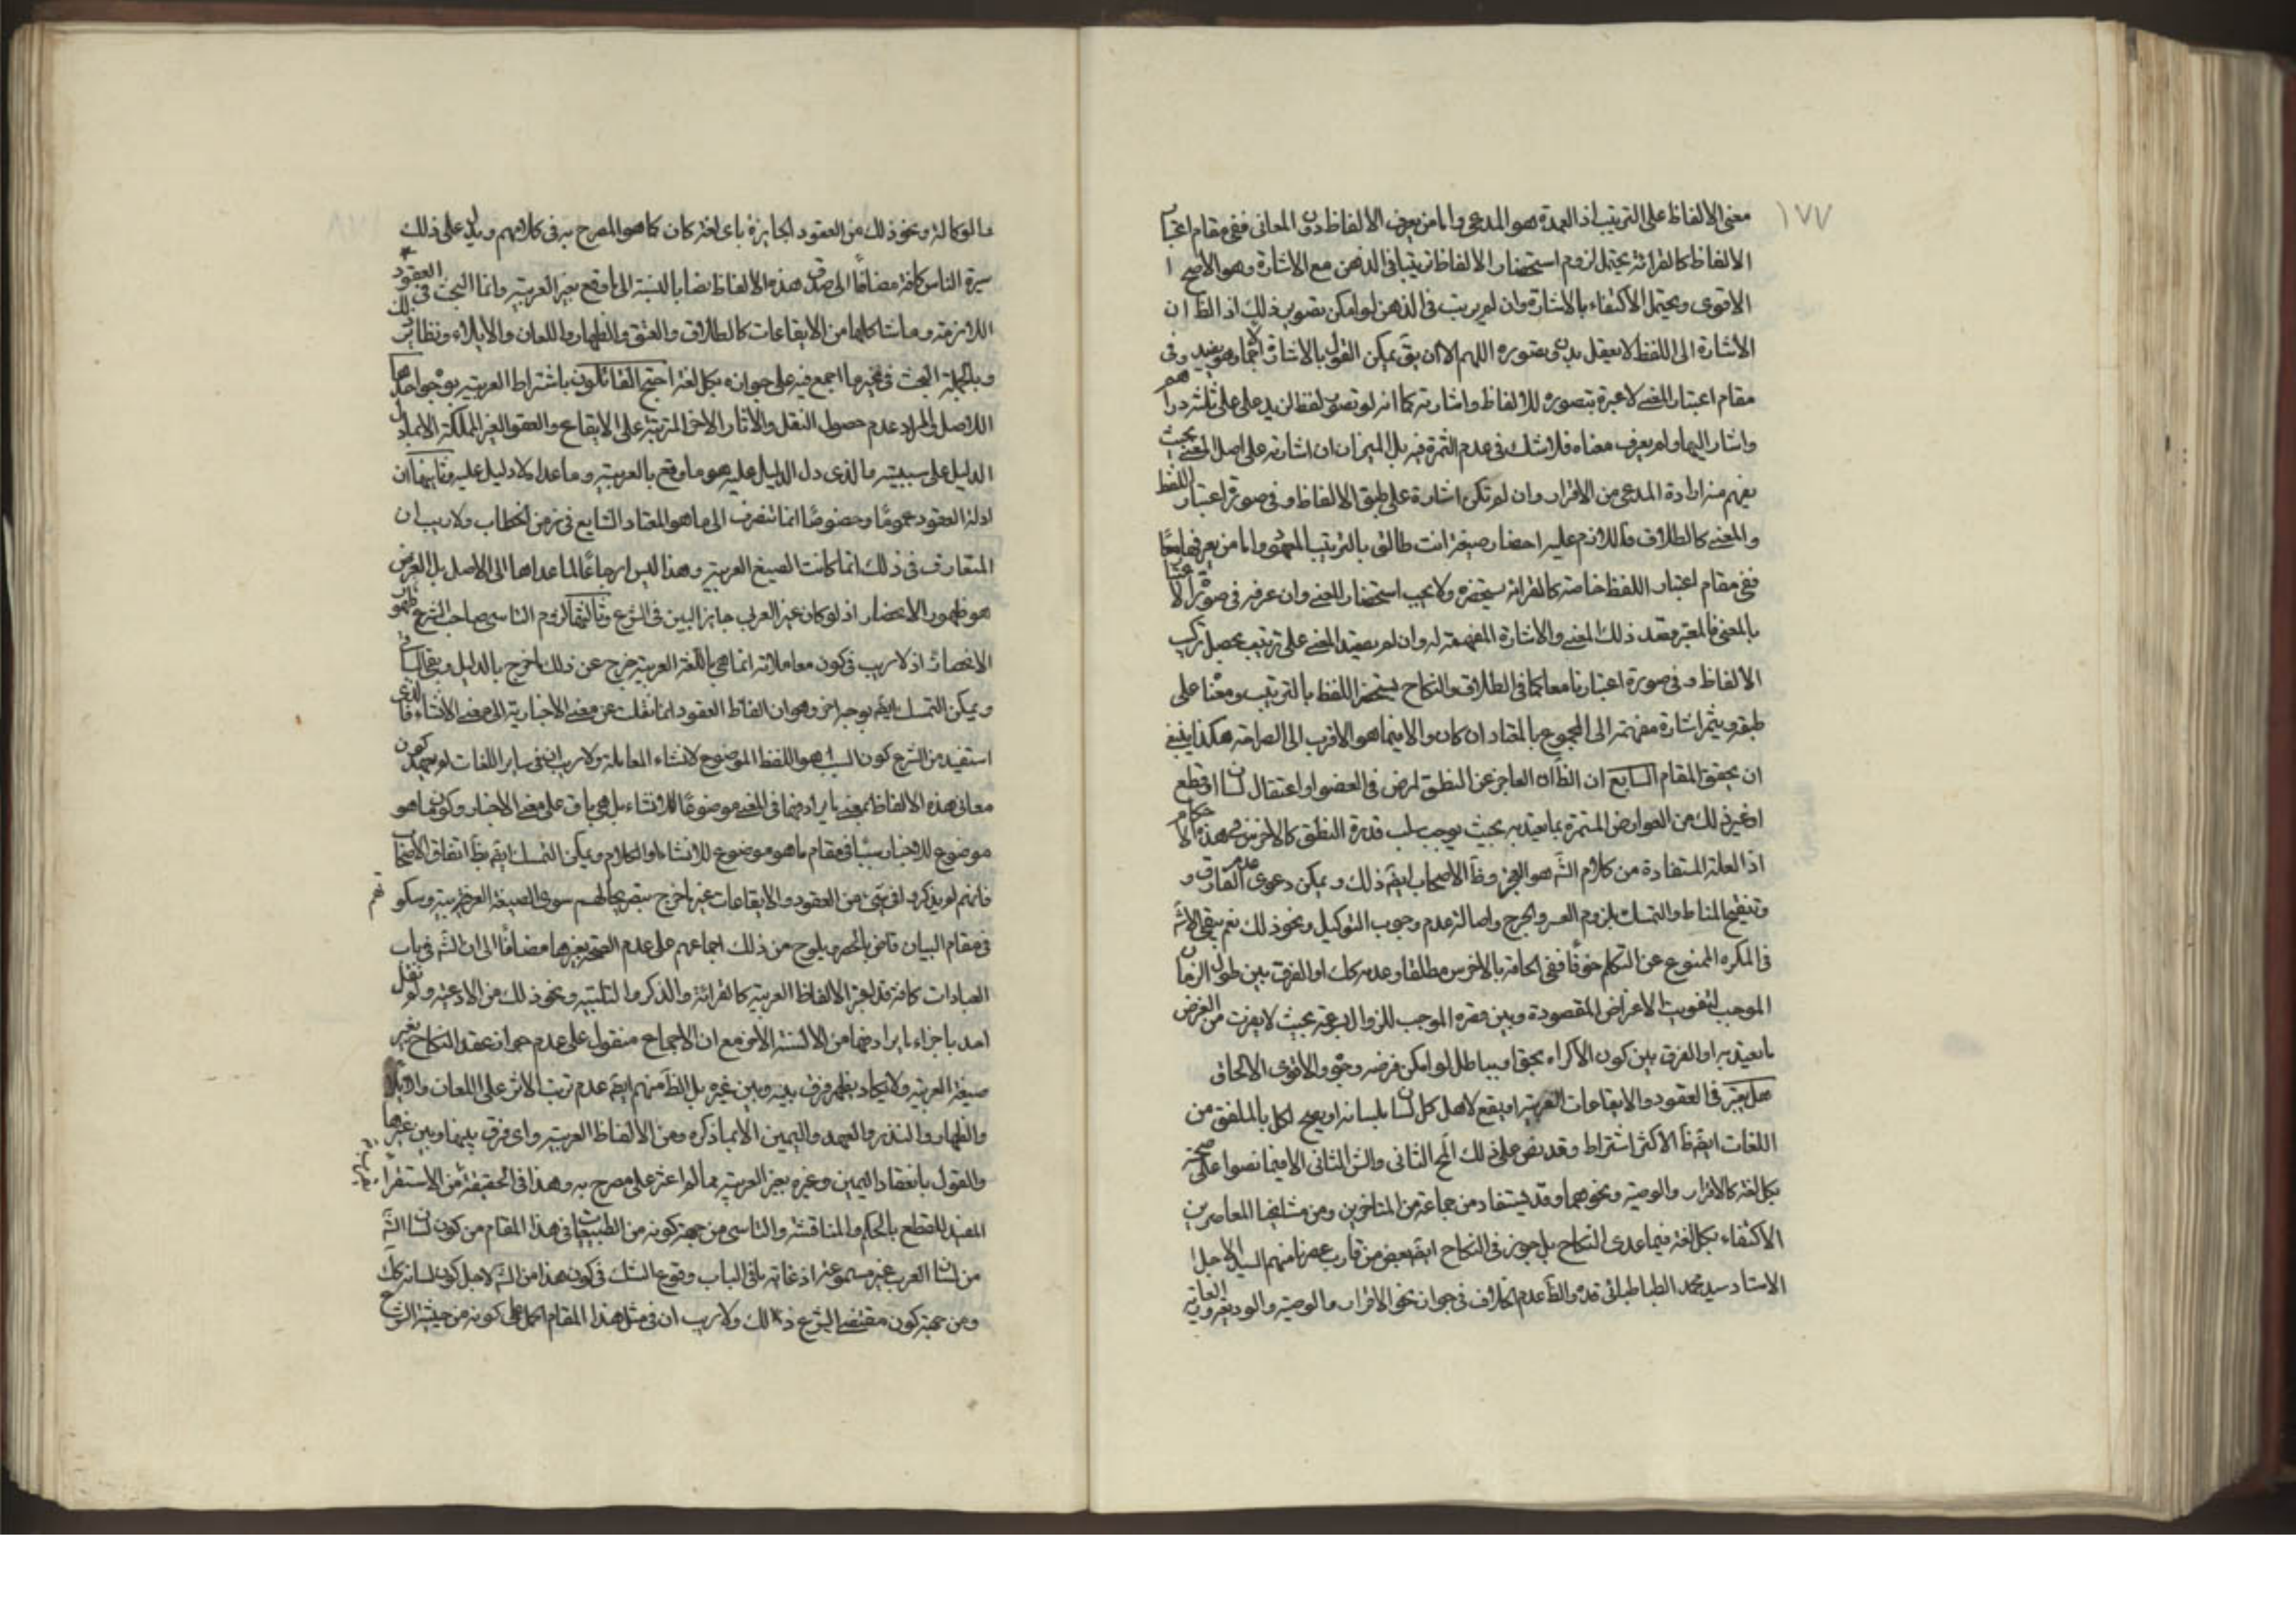 ١٧٧
معنى الالفاظ على الترتيب اذ العمدة هو المدعى واما من يعرف الالفاظ دون المعانى ففى مقام اعتبار
الالفاظ كالقرائة يحتمل لزوم استحضار الالفاظ ترتيبا فى الذهن مع الاشارة وهو الاصح ا
الاقوى ويحتمل الاكتفاء بالاشارة وان لم يرتب فى الذهن لو امكن تصوير ذلك اذ الظ ان
الاشارة الى اللفظ لا يعقل بدون تصوره اللهم الا ان يق يمكن القول بالاشارة اجمالا وهو بعيد وفى
مقام اعتبار المعنى لا عبرة بتصوره للالفاظ واشارته كما انه لو تصور لفظ لزيد على ثلثة دراهم
واشار اليها ولم يعرف معناه فلا شك فى عدم الثمرة فيه بل الميزان ان اشارته على اصل المعنى بحيث
يفهم منه ارادة المدعى من الاقرار وان لم تكن اشارة على طبق الالفاظ وفى صورة اعتبار اللفظ
والمعنى كالطلاق فاللازم عليه احضار صيغة انت طالق بالترتيب المعهود واما من يعرفهما معًا
ففى مقام اعتبار اللفظ خاصة كالقرائة يستحضره ولا يجب استحضار المعنى وان عرفه فى صورة الاعتبار
بالمعنى فالمعتبر قصد ذلك المعنى والاشارة المفهمة له وان لم يقصد المعنى على ترتيب يحصل تركيب
الالفاظ وفى صورة اعتبارنا معا كما فى الطلاق والنكاح يستحضر اللفظ بالترتيب ومعنا على
طبقه ويشير اشارة مفهمة الى المجموع بالمعتاد ان كان والا فيما هو الاقرب الى الصراحة هكذا ينبغى
ان يحقق المقام السابع ان الظ ان العاجز عن النطق لمرض فى العضو او اعتقال لسان او قطع
او غير ذلك من العوارض المستمرة بما يعتد به بحيث يوجب سلب قدرة النطق كالاخرس فى هذه الاحكام
اذ العلة المستفادة من كلام الشه هو العجز وظ الاصحاب ايضه ذلك ويمكن دعوى عدم الفارق و
وتنقيح المناط والتمسك بلزوم العسر والحرج واصالة عدم وجوب التوكيل ونحو ذلك نعم يبقى الاش
فى المكره الممنوع عن التكلم خوفًا ففى الحاقه بالاخرس مطلقا وعدمه كك او الفرق بين طول الزمان
الموجب لتفويت الاغراض المقصودة وبين قصره الموجب للزوال بسرعة بحيث لا يفوت من الغرض
ما يعتد به او الفرق بين كون الاكراه بحق او بباطل لو امكن فرضه وجوه والاقوى الالحاق
هل يعتبر فى العقود والايقاعات العربية او يقع لاهل كل لسان بلسانه او يصح لكل بالملفق من
اللغات ايضه ظ الاكثر اشتراط وقد نص على ذلك المح الثانى والش الثانى الا فيما نصوا على صحته
بكل لغة كالاقرار والوصية ونحوهما وقد يستفاد من جماعة من المتاخرين ومن مشايخنا المعاصرين
الاكتفاء بكل لغة فيما عدى النكاح بل جوز فى النكاح ايضه بعض من قارب عصرنا منهم السيد الاجل ا
الاستاد سيد محمد الطباطبائى قده والظ عدم الخلاف فى جواز نحو الاقرار والوصية والوديعة والعارية
والوكالة ونحو ذلك من العقود الجايزة باى لغة كان كما هو المصرح به فى كلامهم ويدل على ذلك
سيرة الناس كافة مضافًا الى صدق هذه الالفاظ ايضا بالنسبة الى ما وقع بغير العربية وانما البحث فى العقود
اللازمة وما شاكلها من الايقاعات كالطلاق والعتق والظهار واللعان والايلاء ونظاير ذلك
وبالجملة البحث فى غير ما اجمع فيه على جوازه بكل لغة احتج القائلون باشتراط العربية بوجوه احدها
الاصل والمراد عدم حصول النقل والاثار الاخر المترتبة على الايقاع والعقود الغير المملكة الا بما دل
الدليل على سببيته فالذى دل الدليل عليه هو ما وقع بالعربية وما عداه لا دليل عليه وثانيها ان
ادلة العقود عمومًا وخصوصًا انما تنصرف الى ما هو المعتاد الشايع فى زمن الخطاب ولا ريب ان
المتعارف فى ذلك انما كانت الصيغ العربية وهذا ليس ارجاعًا لما عداها الى الاصل بل الغرض
هو ظهور الانحصار اذ لو كان غير العربى جايز البين فى الشرع وثالثها لزوم التاسى بصاحب الشرع ظهور
الانحصار اذ لا ريب فى كون معاملاته انما هى باللغة العربية خرج عن ذلك ما خرج بالدليل وبقى الباقى
ويمكن التمسك ايضه بوجه اخر وهو ان الفاظ العقود انما نقلت عن معنى الاخبارية الى معنى الانشاء فالذى
استفيد من الشرع كون السبب هو اللفظ الموضوع لانشاء المعاملة ولا ريب ان فى ساير اللغات لم يعهد كون
معانى هذه الالفاظ بمعنى ما يرادفها فى المعنى موضوعًا للانشاء بل هى باق على معنى الاخبار وكون ما هو
موضوع للاخبار سببا فى مقام ما هو موضوع للانشاء اول الكلام ويمكن التمسك ايضه بظ اتفاق الاصحاب
فانهم لم يذكروا فى شئ من العقود والايقاعات غير ما خرج بتصريحا لهم سوى الصيغة العربية وسكوتهم
فى مقام البيان قاض بالحصر ويلوح من ذلك اجماعهم على عدم الصحة بغيرها مضافًا الى ان الشه فى باب
العبادات كافة قد اعتبر الالفاظ العربية كالقرائة والذكر والتلبية ونحو ذلك من الادعية ولم نقل
احد باجزاء ما يرادفها من الالسنة الاخر مع ان الاجماع منقول على عدم جواز عقد النكاح بغير
صيغة العربية ولا يكاد يظهر فرق بينه وبين غيره بل الظ منهم ايضه عدم ترتب الاثر على اللعان والايلاء
والظهار والنذر والعهد واليمين الا بما ذكره ومن الالفاظ العربية واى فرق بينها وبين غيرها
والقول بانعقاد اليمين وغيره بغير العربية مما لم اعثر على مصرح به وهذا فى الحقيقة من الاستقراء
المفيد للقطع بالحكم والمناقشة والتاسى من جهة كونه من الطبيعيات فى هذا المقام من كون لسان الشه
من لسان العرب غير مسموعة اذ غايته ما فى الباب وقوع الشك فى كون هذا من الشه لاجل كون لسانه كك
ومن جهة كون مقتضى الشرع ذلك ولا ريب ان فى مثل هذا المقام الحمل على كونه من حيثية الشرع